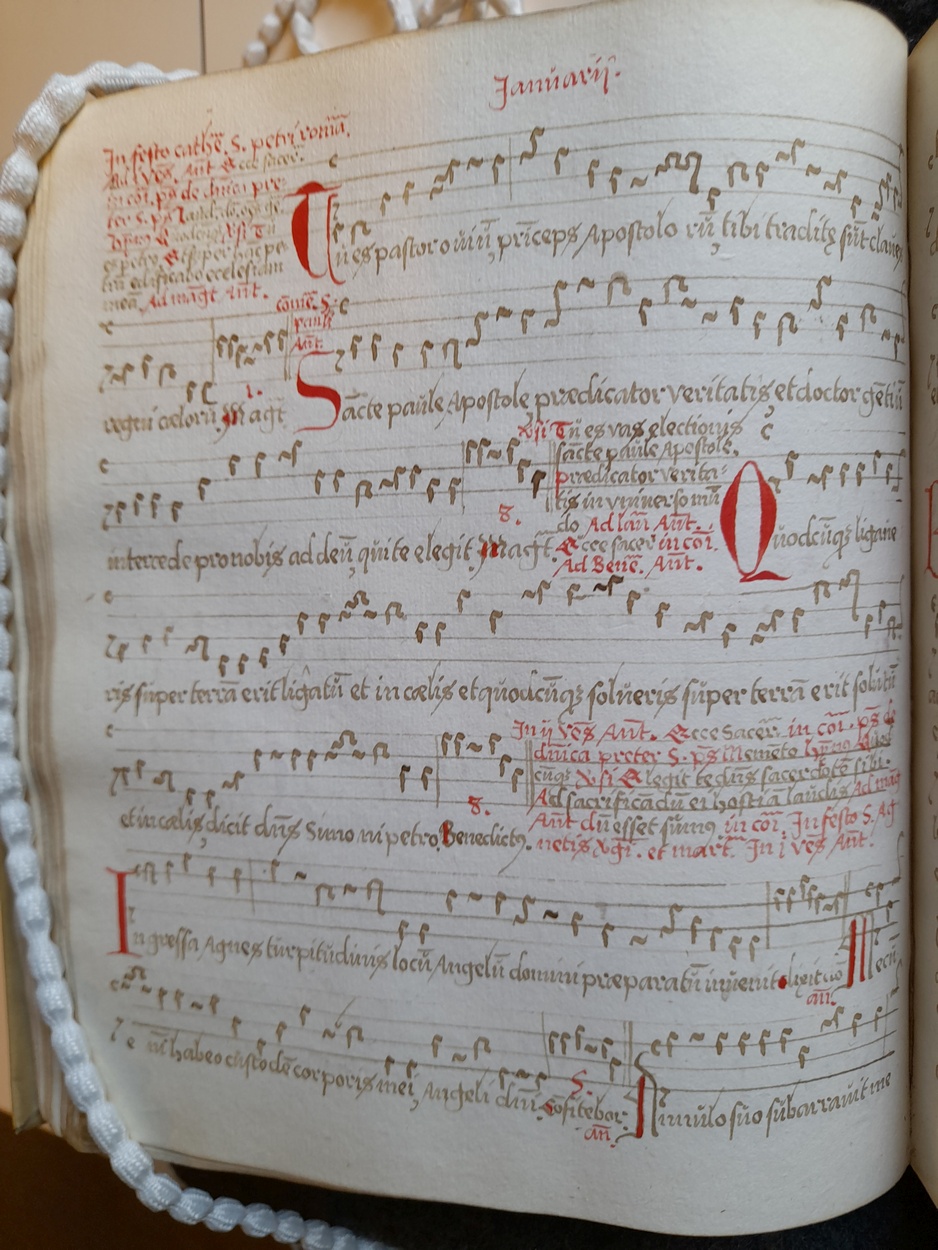 Januarij.
In festo cathē. S. petri romā.
Ad i vēs. Ānt. Ecce sacer.
in cōi. ps̄ de dn̄ica pre-
ter S. ps̄ Laud.
es petrꝰ. Et super hāc pe
trā edificabo ecclesiam
meā. Ad māgt. Ānt.
Tu es pastor ouiū, prīceps Apostolorū, tibi traditę sūt claues
comē. S.
pauli
Ānt.
regni cælorū. Magt
1.
Sācte paule Apostole, prædicator veritatis et doctor gētiū
intercede pro nobis ad deū, qui te elegit. Magt.
8.
Vsi Tu es vas electionis
sācte paule Apostole.
prædicator verita-
tis in vniuerso mū
do Ad laū. Ānt.
Ecce sacer in cōi.
Ad Benē. Ānt.
Quodcūqꝫ ligaue
ris super terrā erit ligatū et in cælis et quodcūqꝫ solueris super terrā erit solutū
et in cælis, dicit dn̄s Simoni petro. Benedictꝰ.
8.
In ij vēs. Ānt. Ecce Sacer. in cōi. ps̄ de
dn̄ica preter S. ps̄ Memēto
cūqꝫ Vsi Elegit te dn̄s sacerdotē sibi.
Ad sacrificādū ei hostiā laudis Ad mag
Ānt dū esset sūmꝰ in cōi. In festo S. Ag
netis Vgī. et mart. In i vēs Ānt.
Ingressa Agnes turpitudinis locū Angelū domini præparatū inuenit
an̄.
Mecū
e nī habeo custodē corporis mei, Angelū dn̄i. Cōfitebor.
an̄.
Annulo suo subarrauit me